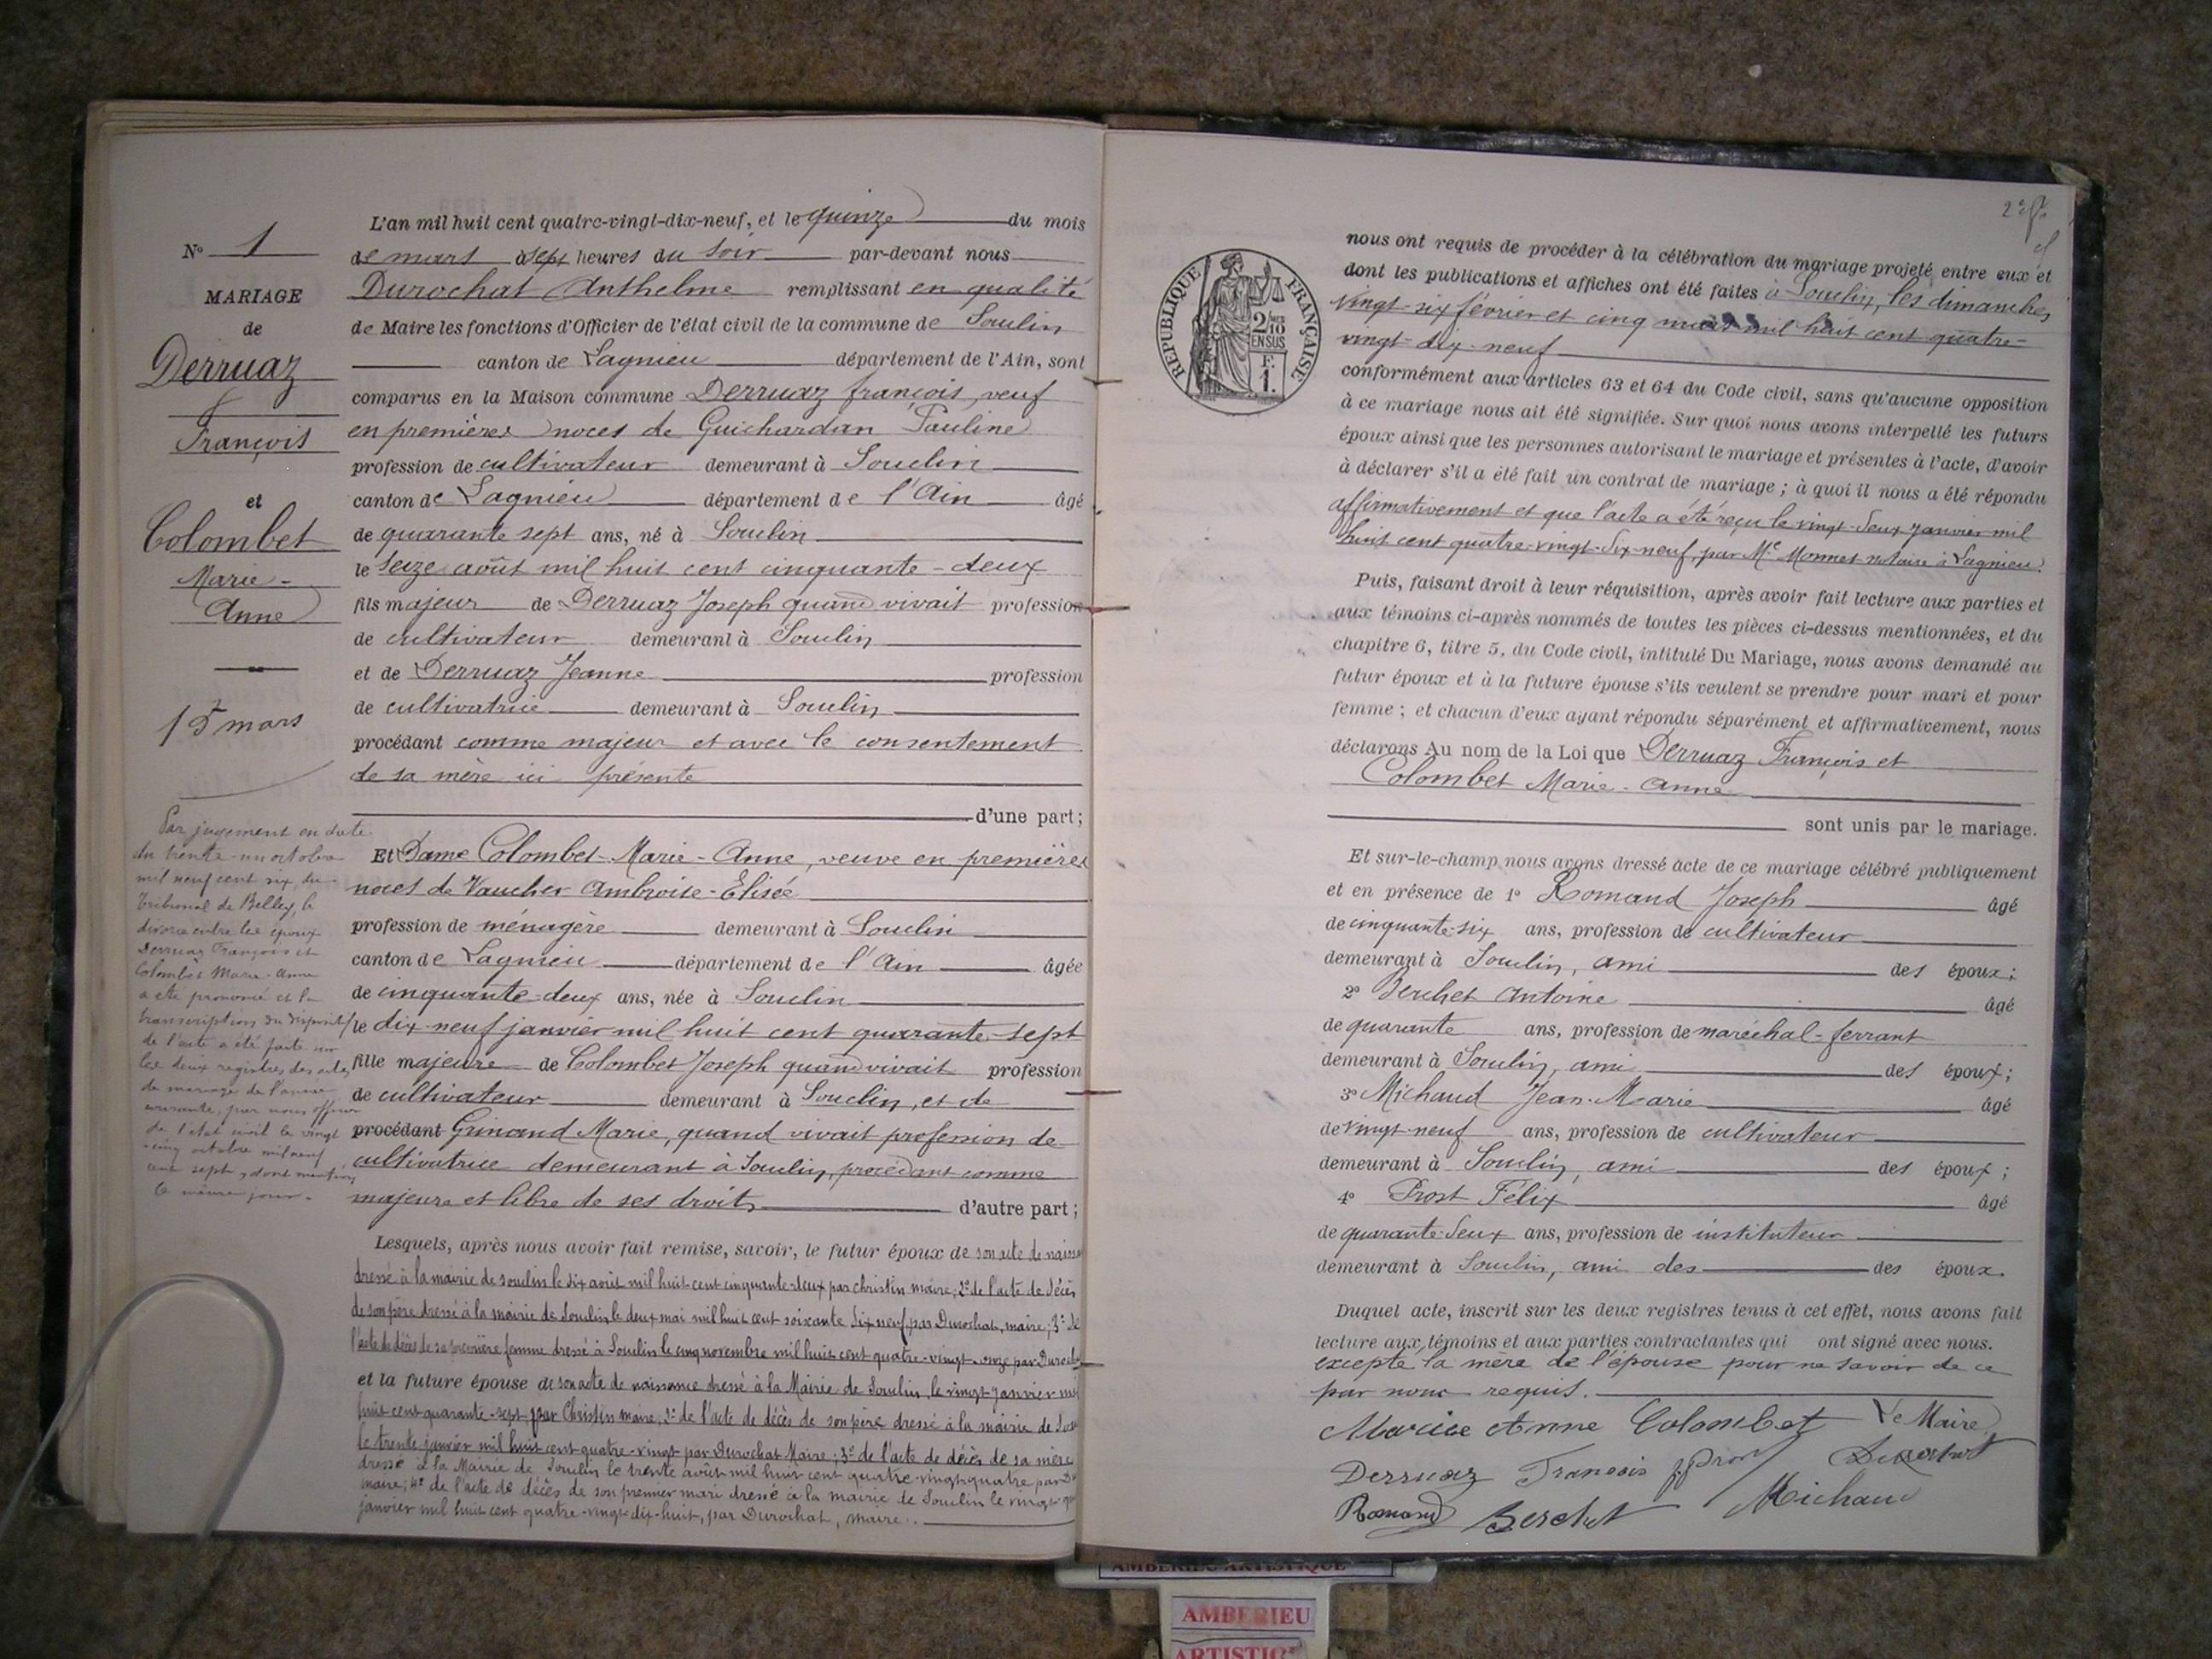 N° 1
MARIAGE
de
Derruaz
François
et
Colombet
Marie-
Anne
15 mars
Par jugement en date
du trente-un octobre
mil neuf cent six, du
tribunal de Belley, le
divorce entre les époux
Derruaz François et
Colombet Marie-Anne
a été prononcé et la
transcription du dispositif
de l'acte a été faite sur
les deux registres des actes
de mariage de l'année
courante, par nous officier
de l'état civil le vingt
-cinq octobre mil neuf
cent sept, dont mention
le même jour.
L'an mil huit cent quatre-vingt-dix-neuf, et le quinze du mois
de mars à sept heures du soir par-devant nous
Durochat Anthelme remplissant en qualité
de Maire les fonctions d'Officier de l'état civil de la commune de Souclin
canton de Lagnieu département de l'Ain, sont
comparus en la Maison commune Derruaz françois, veuf
en premières noces de Guichardan Pauline
profession de cultivateur demeurant à Souclin
canton de Lagnieu département de l'Ain âgé
de quarante sept ans, né à Souclin
le seize août mil huit cent cinquante-deux
fils majeur de Derruaz Joseph quand vivait profession
de cultivateur demeurant à Souclin
et de Derruaz Jeanne profession
de cultivatrice demeurant à Souclin
procédant comme majeur et avec le consentement
de sa mère ici présente
d'une part;
Et Dame Colombet-Marie-Anne, veuve en premières
noces de Vaucher Ambroise-Elisée
profession de ménagère demeurant à Souclin
canton de Lagnieu département de l'Ain âgée
de cinquante-deux ans, née à Souclin
le dix-neuf janvier mil huit cent quarante-sept
fille majeure de Colombet Joseph quand vivait profession
de cultivateur demeurant à Souclin, et de
procédant Grinand Marie, quand vivait profession de
cultivatrice demeurant à Souclin, procédant comme
majeure et libre de ses droits d'autre part;
Lesquels, après nous avoir fait remise, savoir, le futur époux de son acte de naiss
dressé à la mairie de Souclin le dix août mil huit cent cinquante deux par Christin maire; 2° de l'acte de décès
de son père dressé à la mairie de Souclin le deux mai mil huit cent soixante dix neuf par Durochat, maire; 3° de
l'acte de décès de sa première femme dressé à Souclin le cinq novembre mil huit cent quatre-vingt-onze par Duroch
et la future épouse de son acte de naissance dressé à la Mairie de Souclin le vingt janvier mil
huit cent quarante-sept par Christin maire; 2° de l'acte de décès de son père dressé à la mairie de Sou
le trente janvier mil huit cent quatre-vingt par Durochat Maire; 3° de l'acte de décès de sa mère
dressé à la Mairie de Souclin le trente août mil huit cent quatre-vingt-quatre par D
maire; 4° de l'acte de décès de son premier mari dressé à la mairie de Souclin le vingt-
janvier mil huit cent quatre-vingt-dix-huit, par Durochat, maire.
RÉPUBLIQUE FRANÇAISE
2 10
EN SUS
F.
1.
nous ont requis de procéder à la célébration du mariage projeté entre eux et
dont les publications et affiches ont été faites à Souclin, les dimanches
vingt-six février et cinq mars mil huit cent quatre-
vingt-dix-neuf
conformément aux articles 63 et 64 du Code civil, sans qu'aucune opposition
à ce mariage nous ait été signifiée. Sur quoi nous avons interpellé les futurs
époux ainsi que les personnes autorisant le mariage et présentes à l'acte, d'avoir
à déclarer s'il a été fait un contrat de mariage; à quoi il nous a été répondu
affirmativement et que l'acte a été reçu le vingt-deux janvier mil
huit cent quatre-vingt-dix-neuf, par Me Monnet notaire à Lagnieu.
Puis, faisant droit à leur réquisition, après avoir fait lecture aux parties et
aux témoins ci-après nommés de toutes les pièces ci-dessus mentionnées, et du
chapitre 6, titre 5, du Code civil, intitulé Du Mariage, nous avons demandé au
futur époux et à la future épouse s'ils veulent se prendre pour mari et pour
femme; et chacun d'eux ayant répondu séparément et affirmativement, nous
déclarons Au nom de la Loi que Derruaz François et
Colombet Marie-Anne
sont unis par le mariage.
Et sur-le-champ nous avons dressé acte de ce mariage célébré publiquement
et en présence de 1° Romand Joseph âgé
de cinquante-six ans, profession de cultivateur
demeurant à Souclin, ami des époux;
2° Berchet Antoine âgé
de quarante ans, profession de maréchal-ferrant
demeurant à Souclin, ami des époux;
3° Michaud Jean-Marie âgé
de vingt-neuf ans, profession de cultivateur
demeurant à Souclin, ami des époux;
4° Prost Félix âgé
de quarante-deux ans, profession de instituteur
demeurant à Souclin, ami des des époux.
Duquel acte, inscrit sur les deux registres tenus à cet effet, nous avons fait
lecture aux témoins et aux parties contractantes qui ont signé avec nous.
excepté la mère de l'épouse pour ne savoir de ce
par nous requis.
Mariee Anne Colombet Le Maire
Derruaz Francois f Prost Durochat
Romand Berchet Michaud
AMBERIEU ARTISTIQUE
AMBERIEU
ARTISTIQ